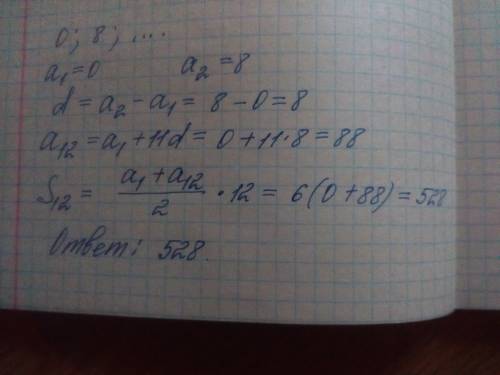 0; 8; ....
a₁=0 a₂=8
d = a₂ - a₁ = 8 - 0 = 8
a₁₂ = a₁ + 11d = 0 + 11·8 = 88
S₁₂ = (a₁ + a₁₂)/2 · 12 = 6(0+88) = 528
Ответ: 528.